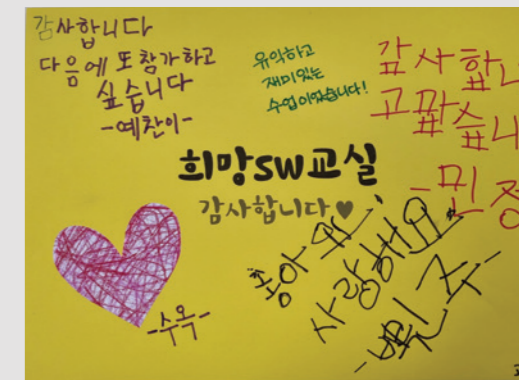 감사합니다
다음에 또 참가하고
싶습니다
-예찬이-
유익하고
재미있는
수업이었습니다!
감사합니
고맙습니
-민정
희망SW교실
감사합니다♥
-수옥-
사랑해요